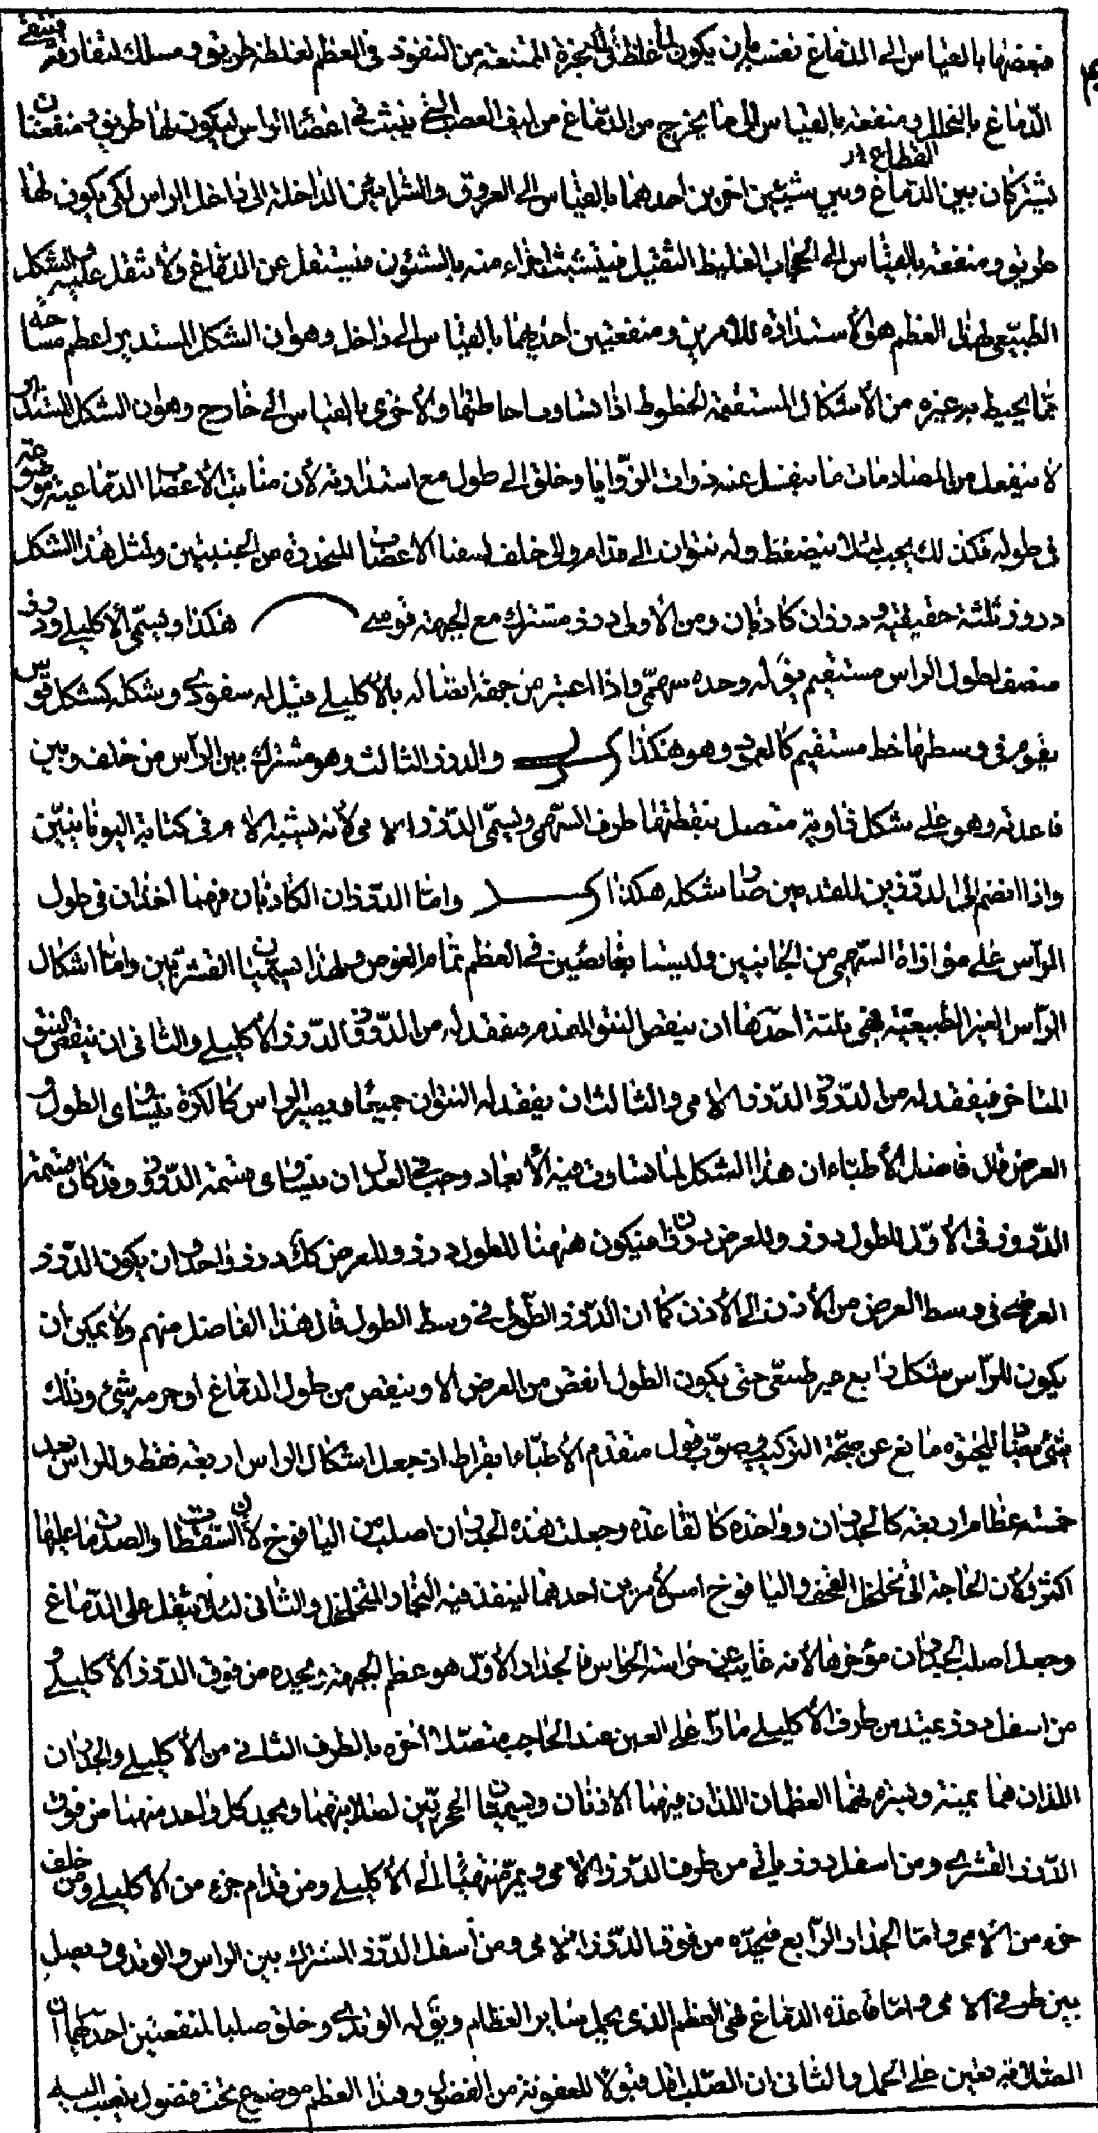 فبعضها بالقياس الى الدماغ نفسه بان يكون للاغلظ فى الابخرة الممتنعة من النفوذ فى العظم لغلظه طريق ومسالك لتفارقه فينقى
الدماغ بالتحلل ومنفعة بالقياس الى ما يخرج من الدماغ من ليف العصب الذى ينبت فى اعضاء الراس ليكون لها طريق ومنفعتان
تشتركان بين الدماغ وبين شيئين اخرين احدهما بالقياس الى العروق والشرائين الداخلة الى داخل الراس لكى يكون لها
طريق ومنفعة بالقياس الى الحجاب الغليظ الثقيل فيتشبث اجزاء منه بالشئون فيستقل عن الدماغ ولا تثقل عليه والشكل
الطبيعى لهذا العظم هو الاستدارة للامرين ومنفعتين احديهما بالقياس الى داخل وهو ان الشكل المستدير اعظم مساحة
مما يحيط به غيره من الاشكال المستقيمة الخطوط اذا تساوت احاطتها والاخرى بالقياس الى خارج وهو ان الشكل المستدير
لا ينفعل من المصادمات ما ينفعل عنه ذوات الزوايا وخلق الى طول مع استدارته لان منابت الاعصاب الدماغية موضوعة
فى طوله فكذلك يجب لئلا ينضغط وله نتوان الى قدام والى خلف ليقيا الاعصاب المنحدرة من الجنبين ولمثل هذا الشكل
دروز ثلثة حقيقية ودرزان كاذبان ومن الاولى درز مشترك مع الجبهة قوسى هكذا ويسمى الاكليلى ودرز
منصف لطول الراس مستقيم يقال له وحده سهمى واذا اعتبر من جهة اتصاله بالاكليلى قيل له سفودى وشكله كشكل قوس
يقوم فى وسطها خط مستقيم كالعمود وهو هكذا والدرز الثالث وهو مشترك بين الراس من خلف وبين
قاعدته وهو على شكل زاوية متصل بنقطتها طرف السهمى ويسمى الدرز اللامى لانه يشبه اللام فى كتابة اليونانيين
واذا انضم الى الدرزين المقدمين صار شكله هكذا واما الدرزان الكاذبان فهما اخذان فى طول
الراس على موازاة السهمى من الجانبين وليسا بغائصين فى العظم تمام الغوص ولهذا يسميان القشريين واما اشكال
الراس الغير الطبيعية فهى ثلثة احدها ان ينقص النتو المقدم فيفقد له من الدروز الدرز الاكليلى والثانى ان ينقص النتو
المتاخر فيفقد له من الدروز الدرز اللامى والثالث ان يفقد له النتوان جميعا ويصير الراس كالكرة متساوى الطول و
العرض قال فاضل الاطباء ان هذا الشكل لما تساوت فيه الابعاد وجب فى العدل ان يتساوى قسمة الدروز وقد كان قسمة
الدروز فى الاول للطول درز وللعرض درزان فيكون ههنا للطول درز وللعرض كك درز واحد وان يكون الدرز
العرضى فى وسط العرض من الاذن الى الاذن كما ان الدرز الطولى فى وسط الطول قال هذا الفاضل منهم ولا يمكن ان
يكون للراس شكل رابع غير طبيعى حتى يكون الطول انقص من العرض الا وينقص من طول الدماغ او جرمه شئ وذلك
شئ مضاد للحيوة مانع عن صحة التركيب وصوب قول متقدم الاطباء ابقراط اذ جعل اشكال الراس اربعة فقط وللراس بعد
خمسة عظام اربعة كالجدران وواحدة كالقاعدة وجعلت هذه الجدران اصلب من اليافوخ لان السقطات والصدمات عليها
اكثر وكان الحاجة الى تخلخل القحف واليافوخ امس لامرين احدهما لينفذ فيه البخار المتحلل والثانى لئلا يثقل على الدماغ
وجعل اصلب الجدران مؤخرها لانه غايب عن حراسة الحواس فالجدار الاول هو عظم الجبهة ويحده من فوق الدرز الاكليلى و
من اسفل درز يمتد من طرف الاكليلى مارا على العين عند الحاجب متصلا اخره بالطرف الثانى من الاكليلى والجداران
اللذان هما يمنة ويسرة فهما العظمان اللذان فيهما الاذنان ويسميان الحجريين لصلابتهما ويحد كل واحد منهما من فوق
الدرز القشرى ومن اسفل درز ياتى من طرف الدرز اللامى ويمر منتهيا الى الاكليلى ومن قدام جزء من الاكليلى ومن خلف
جزء من اللامى واما الجدار الرابع فيحده من فوق الدرز اللامى ومن اسفل الدرز المشترك بين الراس والوتدى ويصل
بين طرفى اللامى واما قاعدة الدماغ فهى العظم الذى يحمل ساير العظام ويقال له الوتدى وخلق صلبا لمنفعتين احديهما ان
الصلابة تعين على الحمل والثانى ان الصلب اقل قبولا للعفونة من الفضول وهذا العظم موضوع تحت فضول ينصب اليه